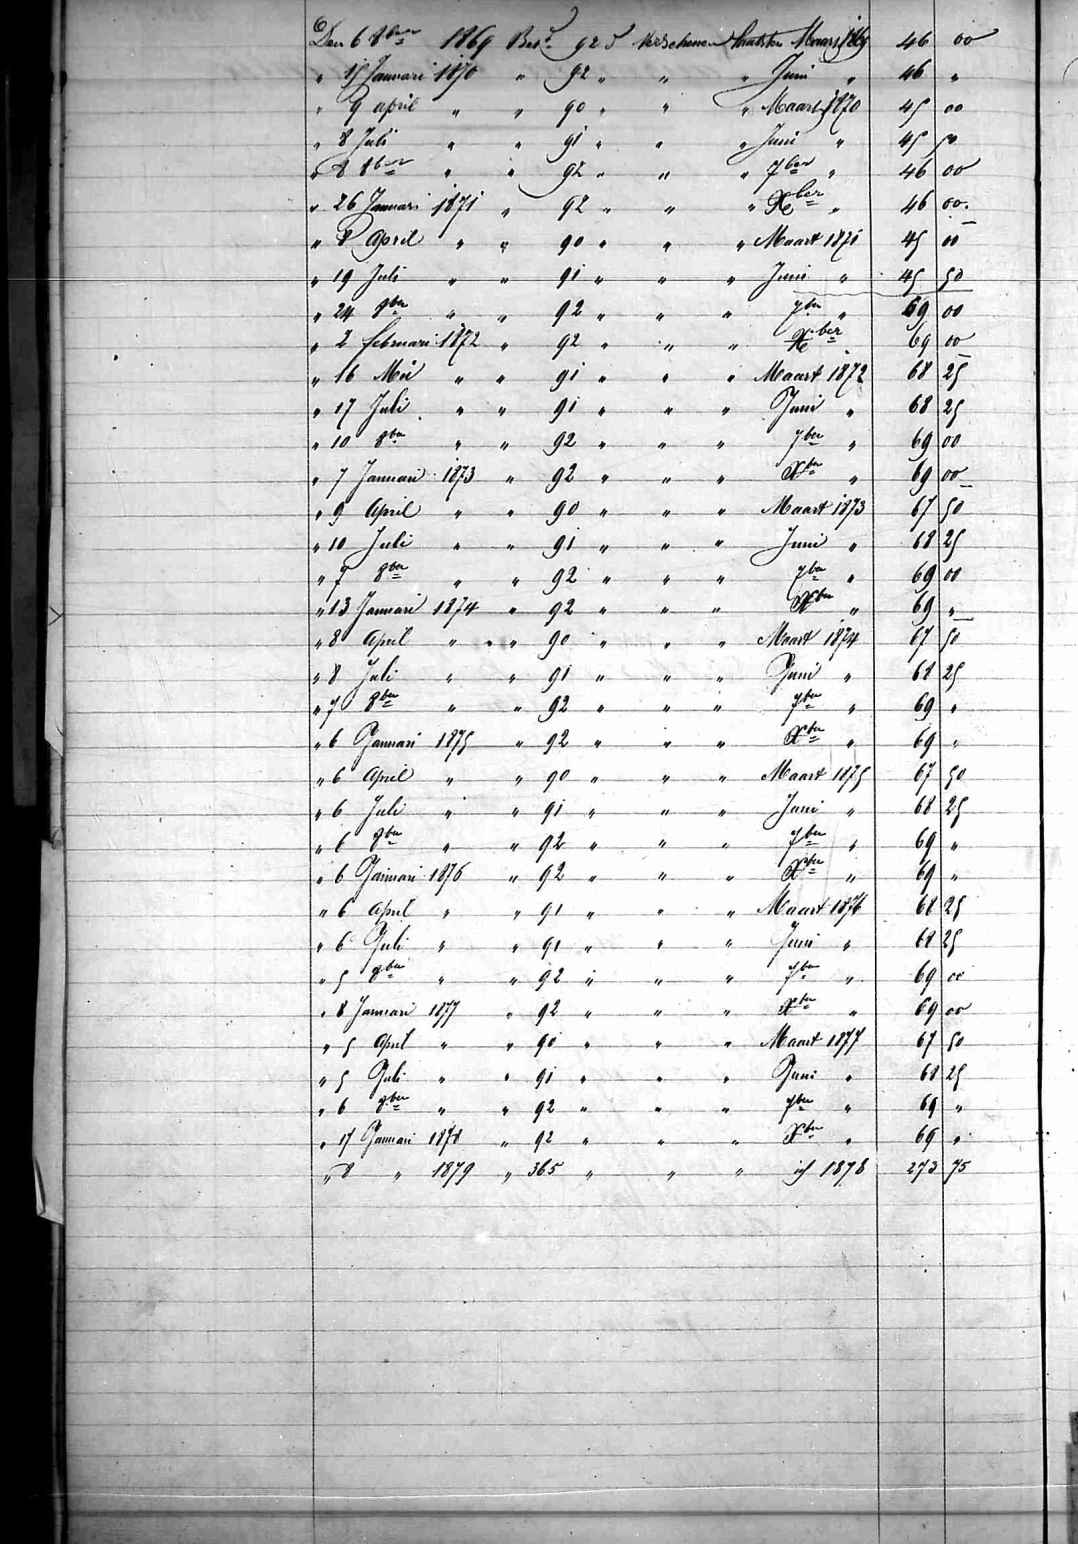 Den 6 8ber 1869 Bet. 92 d verschenen laatsten Maart 1869 46 00
" 15 Januari 1870 " 92 " " " Juni " 46 "
" 9 april " " 90 " " " Maart 1870 45 00
" 8 Juli " " 91 " " " Juni " 45 50
" 8 8ber " " 92 " " " 7ber " 46 00
" 26 Januari 1871 " 92 " " " Xber " 46 00
" 8 April " " 90 " " " Maart 1871 45 00
" 19 Juli " " 91 " " " Juni " 45 50
" 24 8ber " " 92 " " " 7ber " 69 00
" 2 februari 1872 " 92 " " " Xber " 69 00
" 16 Mei " " 91 " " " Maart 1872 68 25
" 17 Juli " " 91 " " " Juni " 68 25
" 10 8ber " " 92 " " " 7ber " 69 00
" 7 Januari 1873 " 92 " " " Xber " 69 00
" 9 April " " 90 " " " Maart 1873 67 50
" 10 Juli " " 91 " " " Juni " 68 25
" 7 8ber " " 92 " " " 7ber " 69 00
" 13 Januari 1874 " 92 " " " Xber " 69 "
" 8 April " " 90 " " " Maart 1874 67 50
" 8 Juli " " 91 " " " Juni " 68 25
" 7 8ber " " 92 " " " 7ber " 69 "
" 6 Januari 1875 " 92 " " " Xber " 69 "
" 6 April " " 90 " " " Maart 1875 67 50
" 6 Juli " " 91 " " " Juni " 68 25
" 6 8ber " " 92 " " " 7ber " 69 "
" 6 Januari 1876 " 92 " " " Xber " 69 "
" 6 April " " 91 " " " Maart 1876 68 25
" 6 Juli " " 91 " " " Juni " 68 25
" 5 8ber " " 92 " " " 7ber " 69 00
" 8 Januari 1877 " 92 " " " Xber " 69 00
" 5 April " " 90 " " " Maart 1877 67 50
" 5 Juli " " 91 " " " Juni " 68 25
" 6 8ber " " 92 " " " 7ber " 69 "
" 17 Januari 1878 " 92 " " " Xber " 69 "
" 8 " 1879 " 365 " " " 1878 273 75